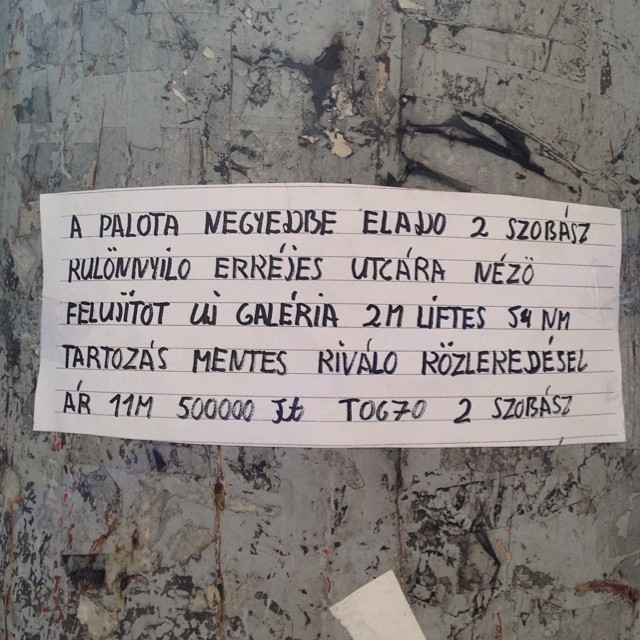 A PALOTA NEGYEDBE ELADO 2 SZOBÁSZ
KULÖNNYILO ERKÉJES UTCÁRA NÉZÖ
FELUJITOT UJ GALÉRIA 2M LIFTES 54 NM
TARTOZÁS MENTES KIVÁLO KÖZLEKEDÉSEL
ÁR 11M 500000 Ft TOG70 2 SZOBÁSZ